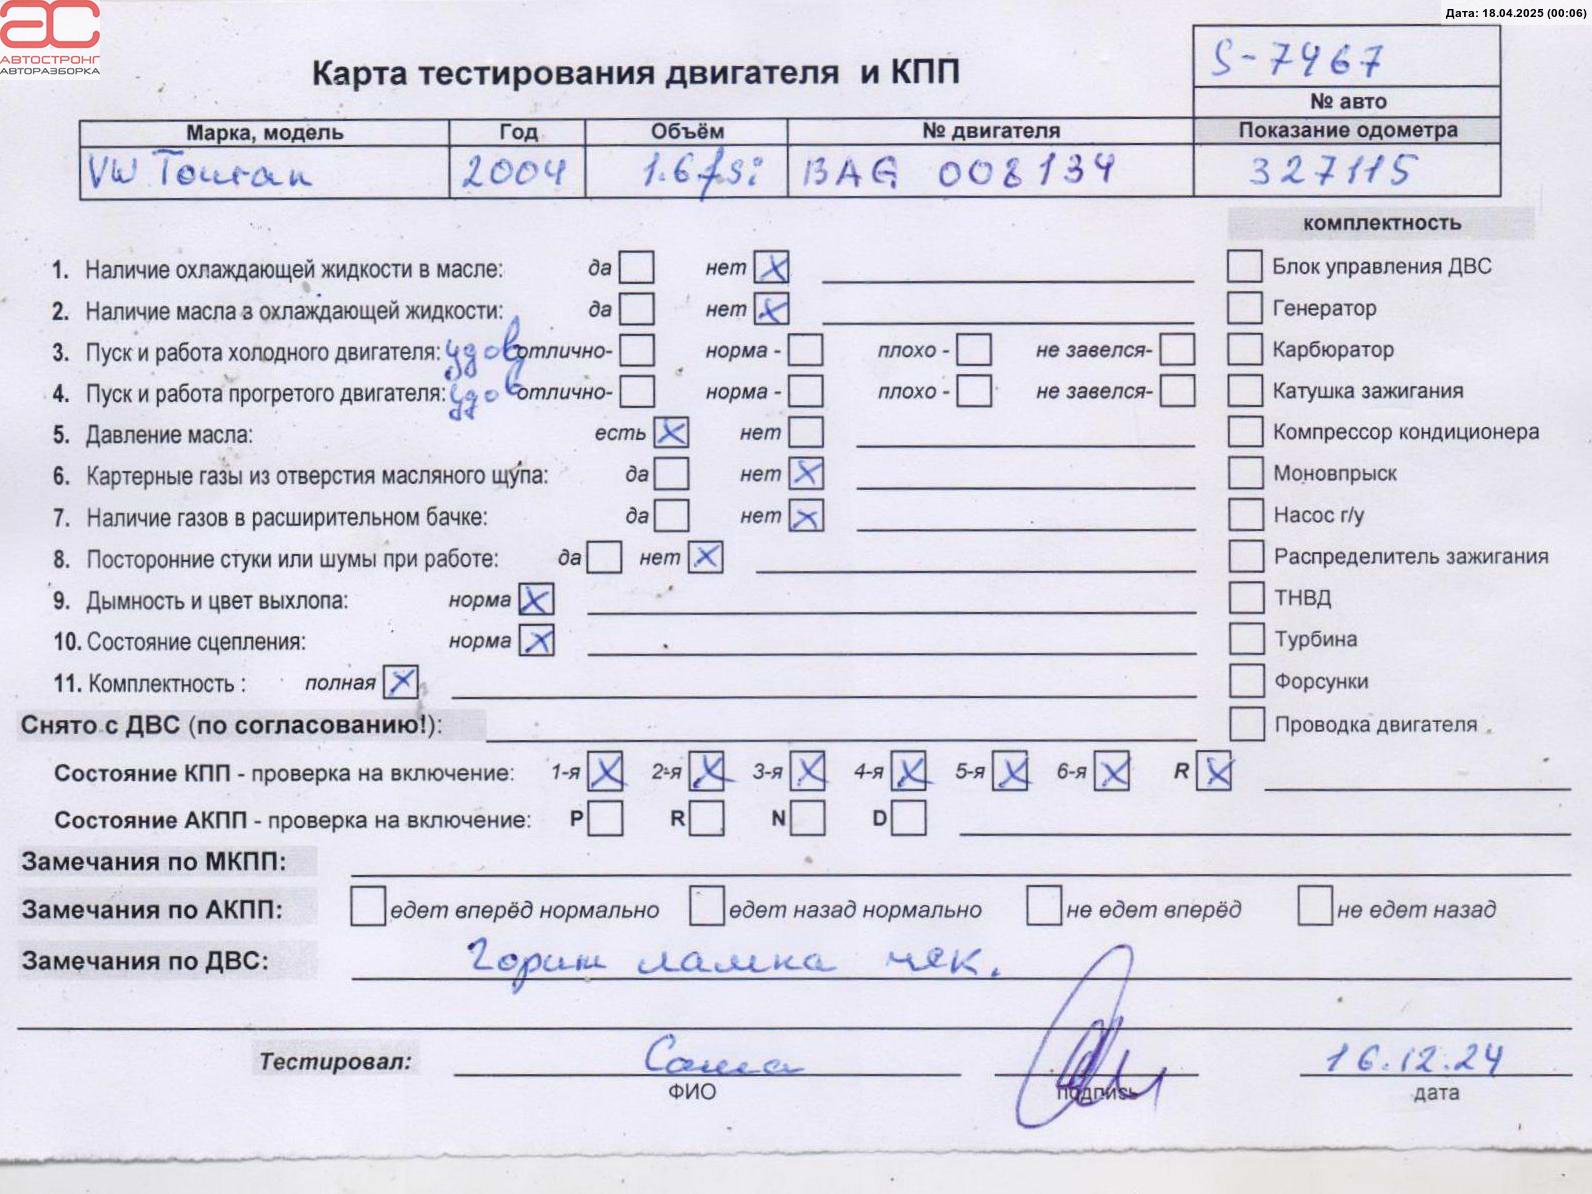 Дата: 18.04.2025 (00:06)
АС
АВТОСТРОНГ
АВТОРАЗБОРКА
Карта тестирования двигателя и КПП
S-7467
№ авто
Марка, модель Год Объём № двигателя Показание одометра
VW Touran 2004 1.6 fsi BAG 008134 327115
комплектность
1. Наличие охлаждающей жидкости в масле: да нет X Блок управления ДВС
2. Наличие масла в охлаждающей жидкости: да нет X Генератор
3. Пуск и работа холодного двигателя: удов отлично- норма - плохо - не завелся- Карбюратор
4. Пуск и работа прогретого двигателя: удов отлично- норма - плохо - не завелся- Катушка зажигания
5. Давление масла: есть X нет Компрессор кондиционера
6. Картерные газы из отверстия масляного щупа: да нет X Моновпрыск
7. Наличие газов в расширительном бачке: да нет X Насос г/у
8. Посторонние стуки или шумы при работе: да нет X Распределитель зажигания
9. Дымность и цвет выхлопа: норма X ТНВД
10. Состояние сцепления: норма X Турбина
11. Комплектность : полная X Форсунки
Снято с ДВС (по согласованию!): Проводка двигателя
Состояние КПП - проверка на включение: 1-я X 2-я X 3-я X 4-я X 5-я X 6-я X R X
Состояние АКПП - проверка на включение: P R N D
Замечания по МКПП:
Замечания по АКПП: едет вперёд нормально едет назад нормально не едет вперёд не едет назад
Замечания по ДВС: Горит лампа чек.
Тестировал: Саша 16.12.24
ФИО подпись дата